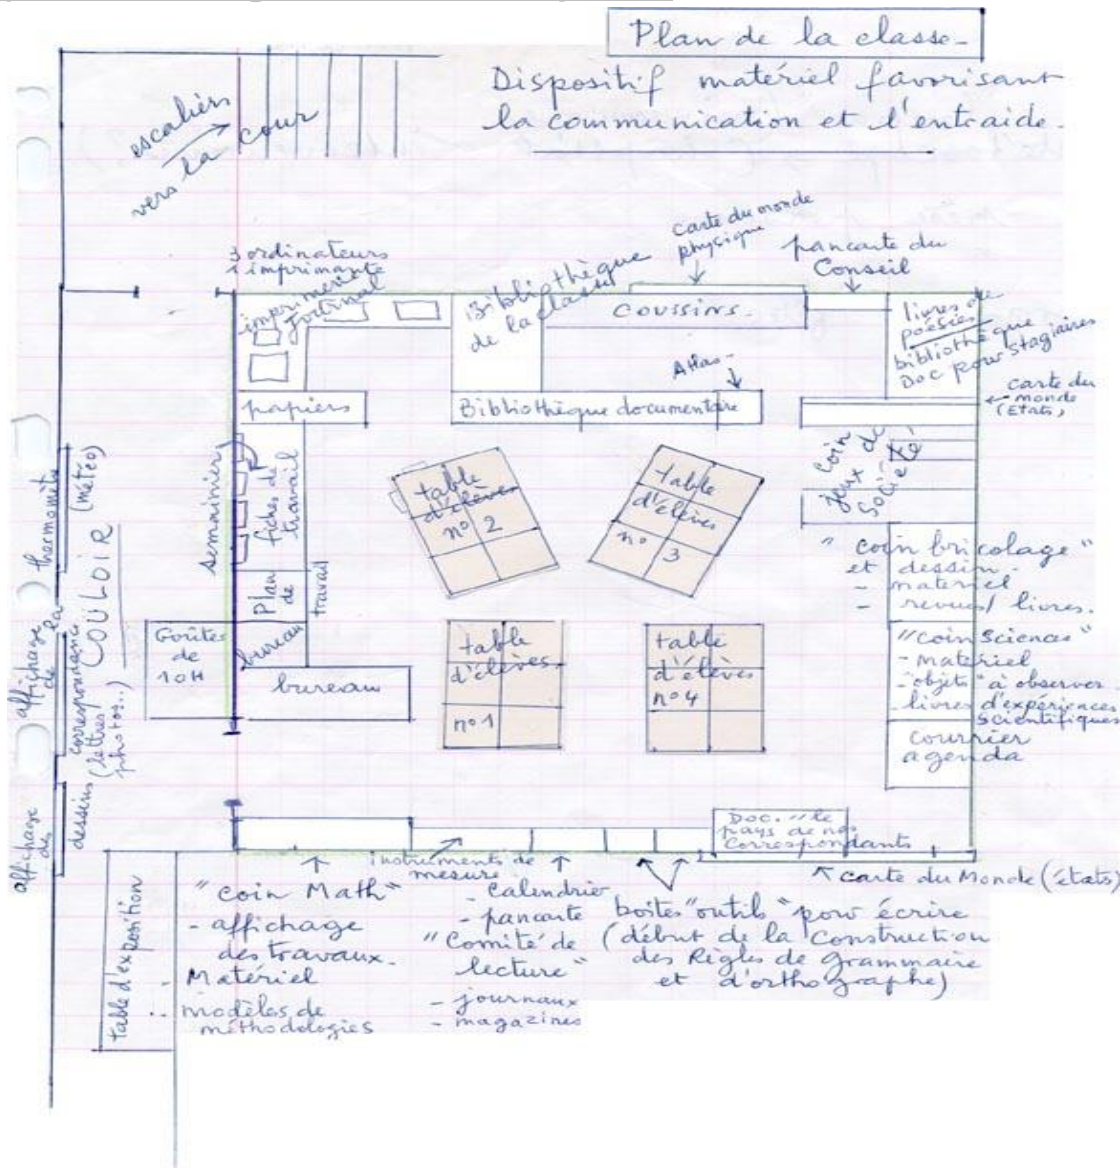 Plan de la classe-
Dispositif matériel favorisant
la communication et l'entraide.
escaliers
vers la cour
3 ordinateurs
1 imprimante
imprimerie
journal
Bibliothèque
de la classe
carte du monde
physique
coussins.
pancarte du
Conseil
livres de
poésies
bibliothèque
Doc pour stagiaires
carte du
monde
(Etats)
papiers
Atlas-
Bibliothèque documentaire
semainier
fiches de
travail
Plan
de
travail
bureau
bureau
Goûter
de
10H
table
d'élèves
n° 2
table
d'élèves
n° 3
table
d'élèves
n° 1
table
d'élèves
n° 4
coin
jeux de
société
"coin bricolage"
et dessin.
- matériel
- revues/livres.
"coin Sciences"
- matériel
- "objets" à observer
- livres d'expériences
scientifiques
courrier
agenda
COULOIR
thermomètre
(météo)
affichage
de la
correspondance
(lettres
photos..)
affichage
de
dessins
table d'exposition
"coin Math"
- affichage
des travaux.
- Matériel
modèles de
méthodologies
instruments de
mesure
- calendrier
- pancarte
"Comité de
lecture"
- journaux
- magazines
Doc. // le
pays de nos
correspondants
carte du Monde (états)
boîtes "outils" pour écrire
(début de la construction
des Règles de grammaire
et d'orthographe)